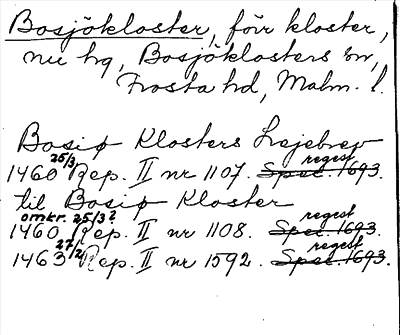 Bosjökloster, förr kloster,
nu hg, Bosjöklosters sn,
Frosta hd, Malm. l.
Bosiø Klosters Lejebrev
1460 25/3 Rep. II nr 1107. Spec. 1693. regest
til Bosiø Kloster
1460 omkr. 25/3? Rep. II nr 1108. Spec. 1693. regest
1463 27/2 Rep. II nr 1592. Spec. 1693. regest